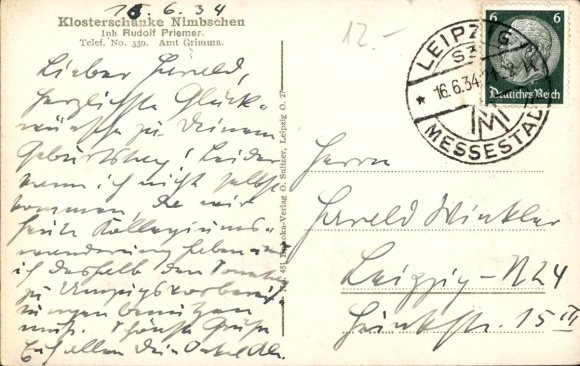 15.6.34
Klosterschänke Nimbschen
Inh Rudolf Priemer.
Telef. No. 330. Amt Grimma.
Lieber Harald,
herzlichste Glück-
wünsche zu Deinem
Geburtstag! Leider
kann ich nicht selbst
kommen, da wir
heute Kollegiums-
wanderung haben und
ich deshalb den Sonntag
zu Umzugsvorberei-
tungen benützen
muß. Schönste Grüße
Euch allen Dein Onkel
12.-
LEIPZIG
16.6.34
MESSESTADT
6 6
Deutsches Reich
Herrn
Harald Winkler
Leipzig-N24
15 III
Verlag O. Sultzer, Leipzig O. 27